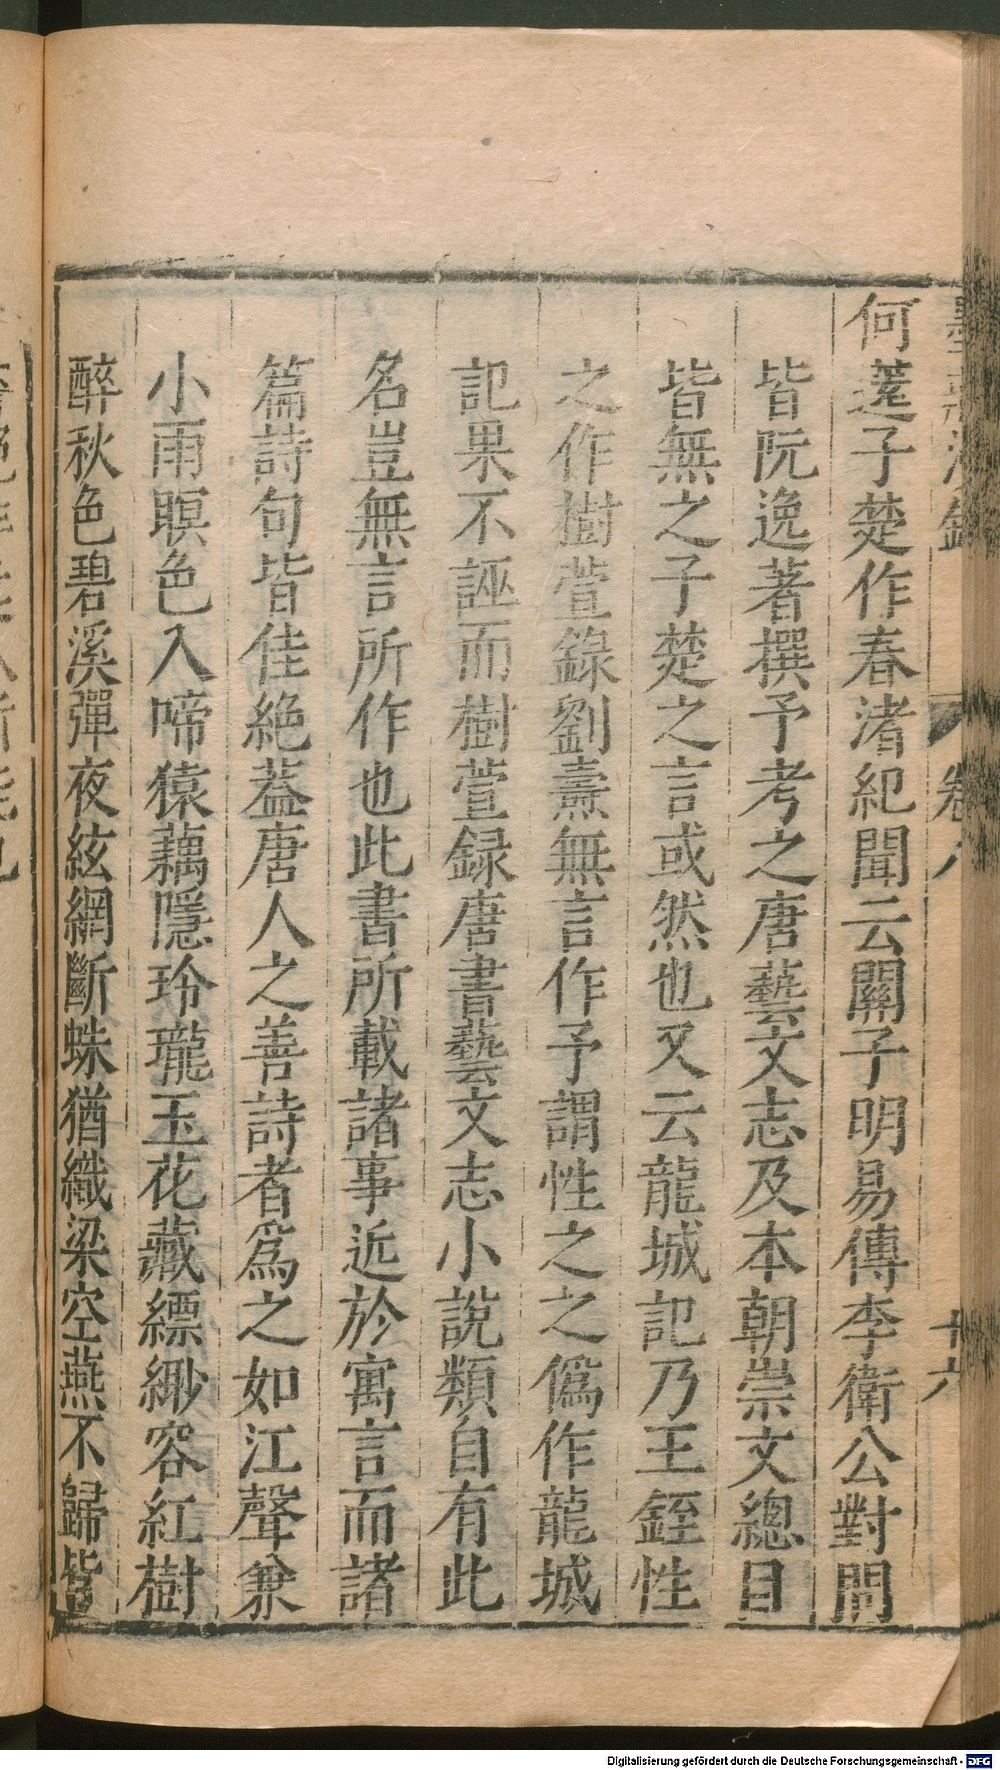 何薳子楚作春渚紀聞云關子明易傳李衛公對問
皆阮逸著撰予考之唐藝文志及本朝崇文總目
皆無之子楚之言或然也又云龍城記乃王銍性
之作樹萱錄劉燾無言作予謂性之之僞作龍城
記果不誣而樹萱録唐書藝文志小說類自有此
名豈無言所作也此書所載諸事近於寓言而諸
篇詩句皆佳絶葢唐人之善詩者爲之如江聲兼
小雨暝色入啼猿藕隱玲瓏玉花藏縹緲容紅樹
醉秋色碧溪彈夜絃網斷蛛猶織梁空燕不歸皆
卷八
十六
Digitalisierung gefördert durch die Deutsche Forschungsgemeinschaft - DFG